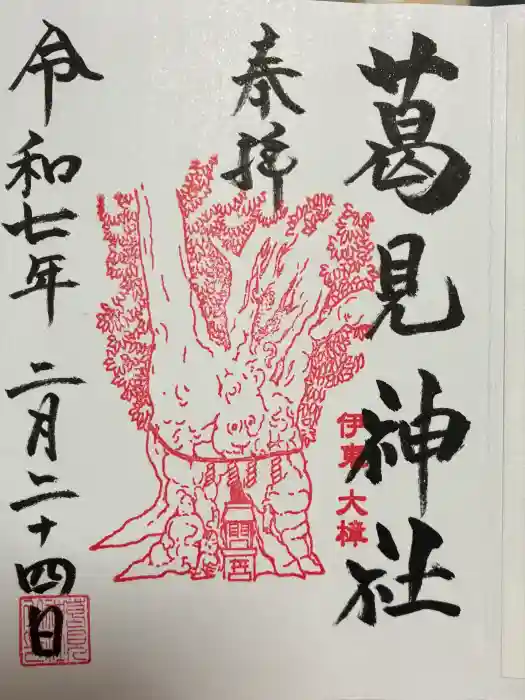 葛見神社
奉拝
伊東 大樟
令和七年 二月二十四日